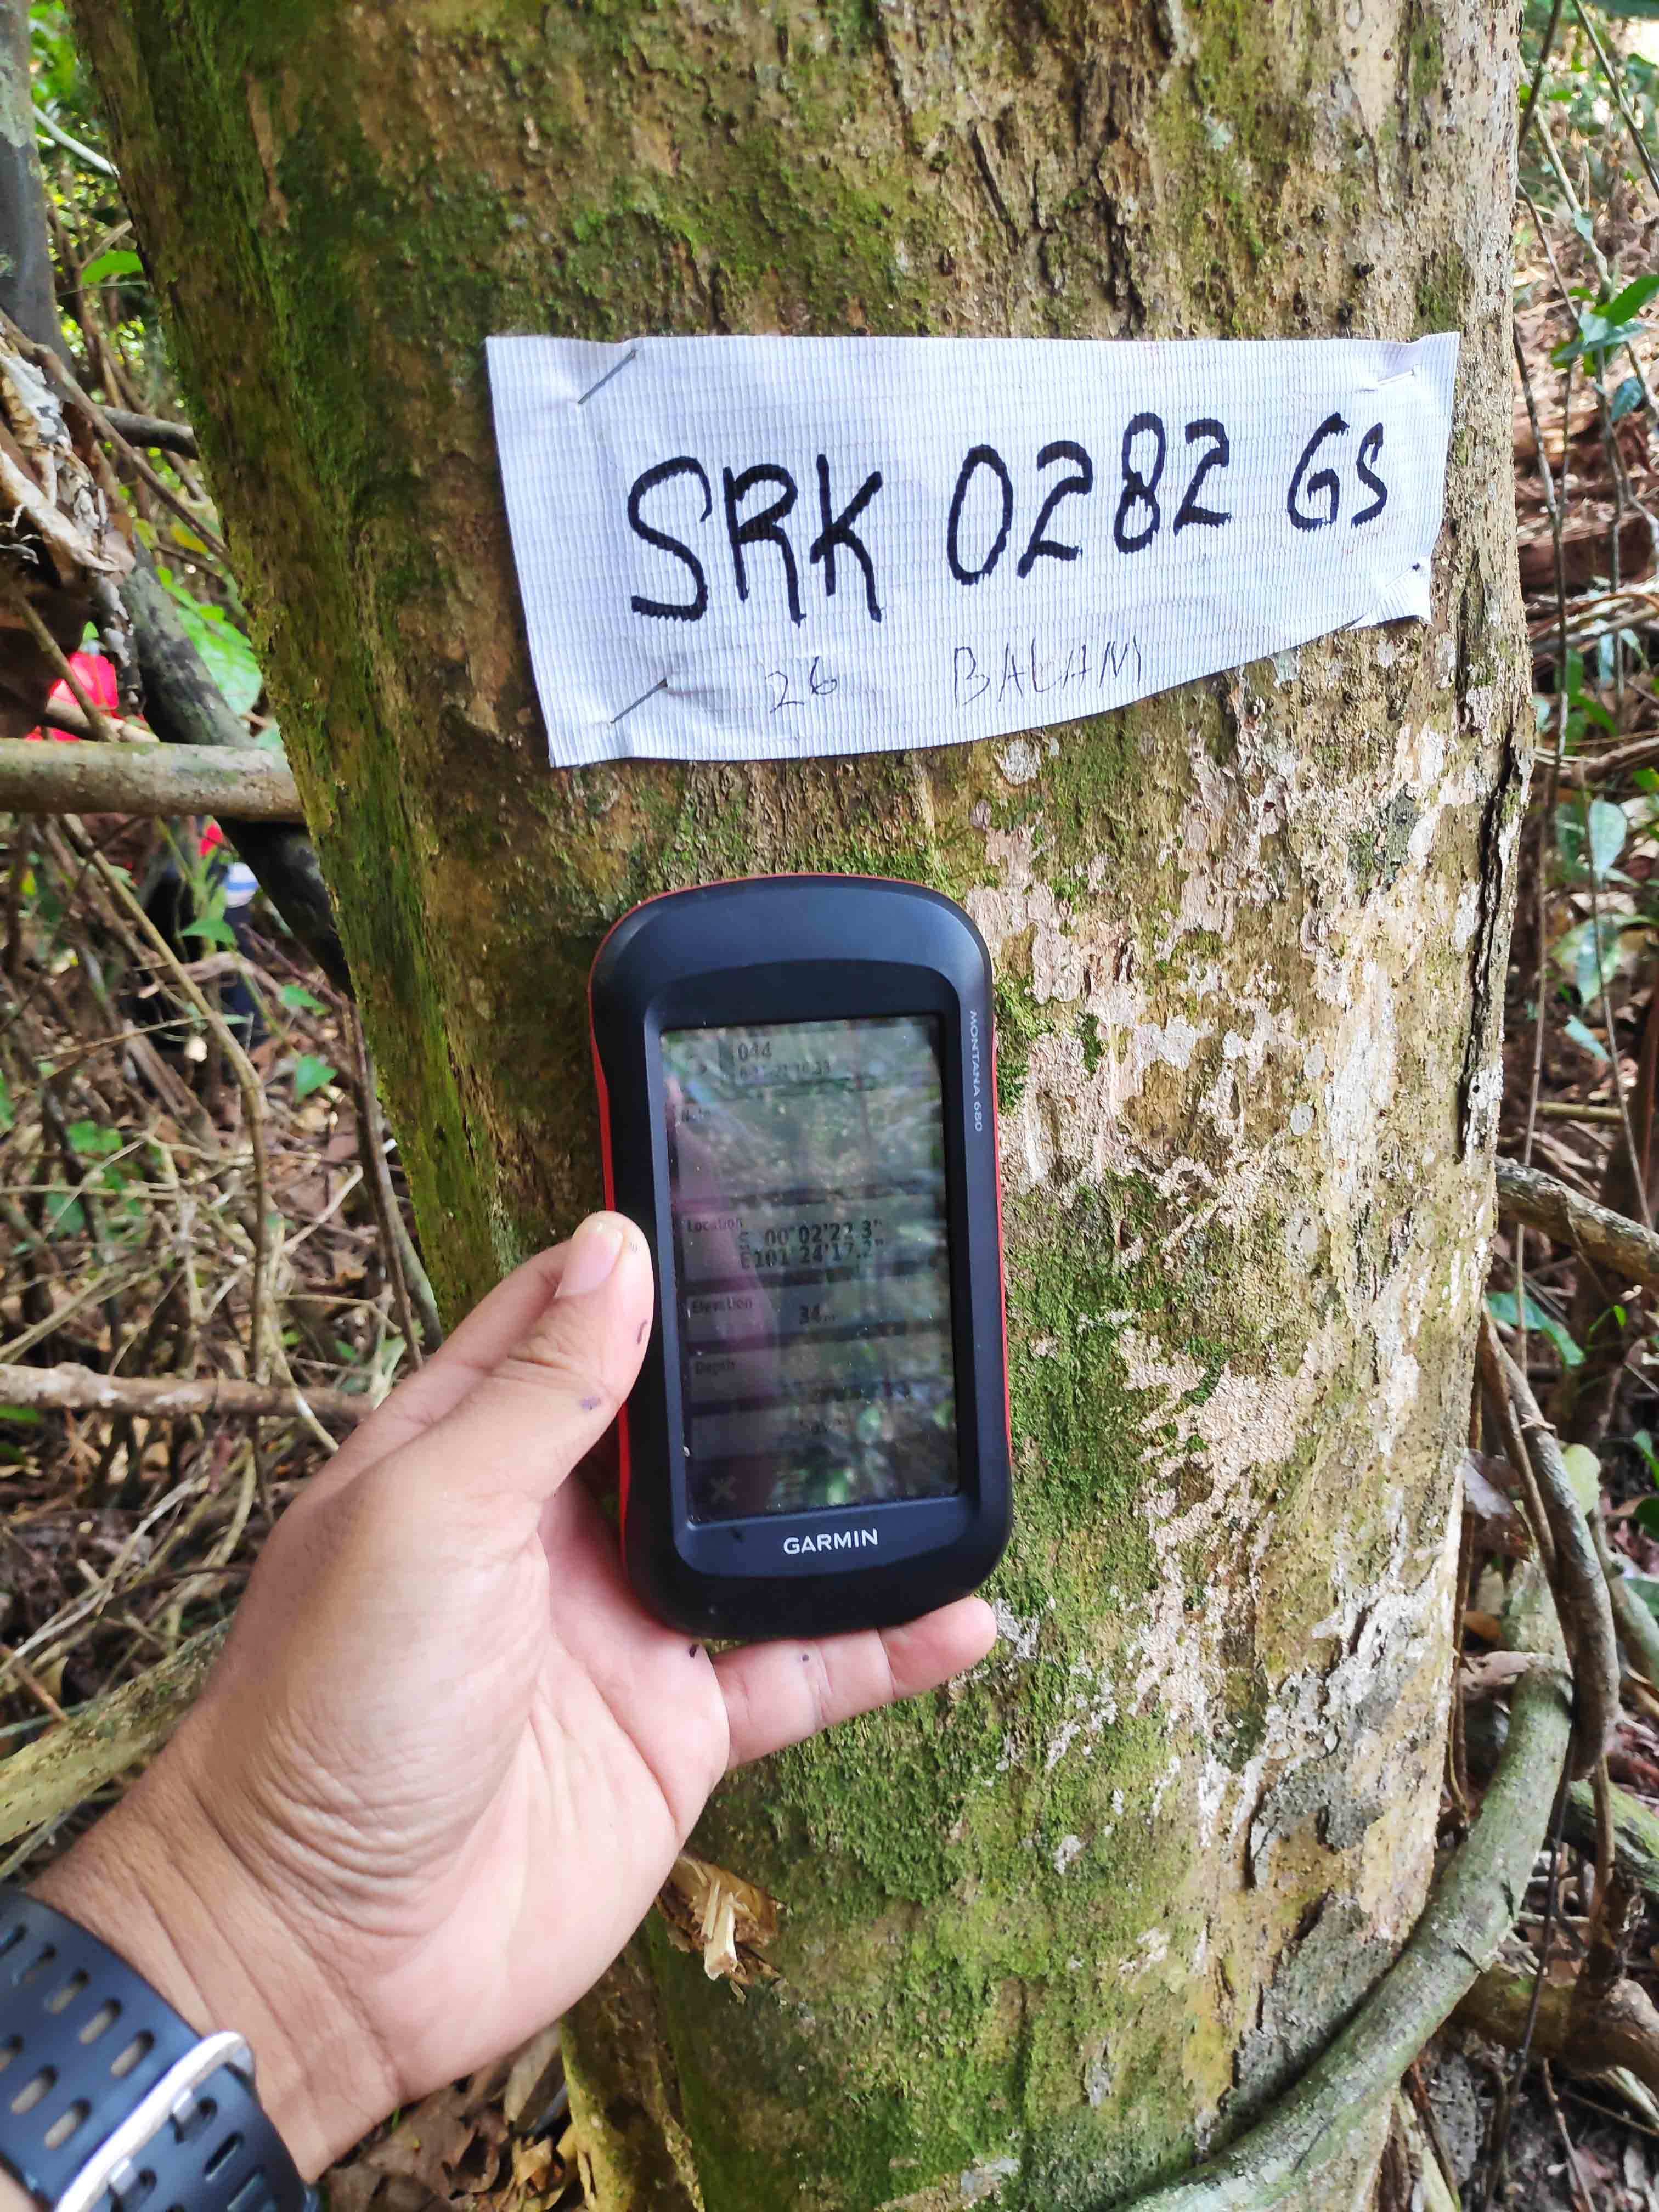 SRK 0282 GS
26 BALAM
MONTANA 680
044
Note
Location
S 00°02'22.3"
E101°24'17.2"
Elevation
34m
Depth
GARMIN